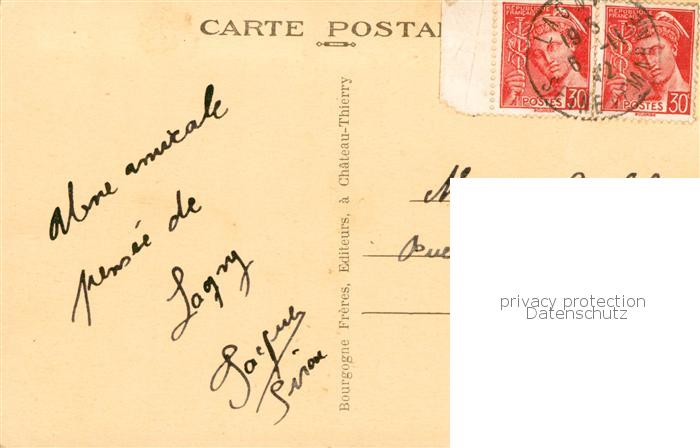 CARTE POSTA
RÉPUBLIQUE FRANÇAISE
POSTES 30
RÉPUBLIQUE FRANÇAISE
POSTES 30
LAGNY
19
6 -11
42
Une amicale
pensée de
Lagny
Jacques
Bourgogne Frères, Editeurs, à Château-Thierry
Rue
privacy protection
Datenschutz